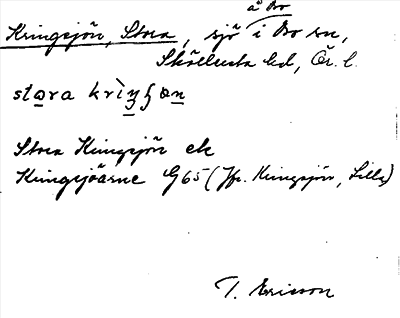 å Bo
Kringsjön, Stora, sjö i Bo sn,
Sköllersta hd, Ör. l.
stora kriŋʃon
Stora Kringsjön ek
Kringsjöarne G65 (Jfr. Kringsjön, Lilla)
T. Ericson